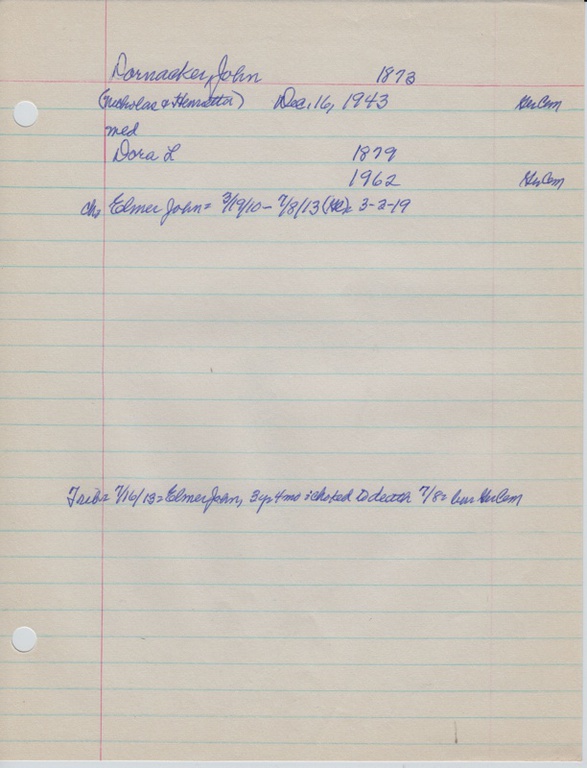 Dornacker, John 1873
(Nicholas & Henrietta) Dec. 16, 1943 HerCem
med
Dora L 1879
1962 HerCem
ch= Elmer John = 3/19/10 - 7/8/13 (HC)= 3-2-19
Trib= 7/16/13 = Elmer Jean, 3 y 4 mo = choked to death 7/8 = bur HerCem